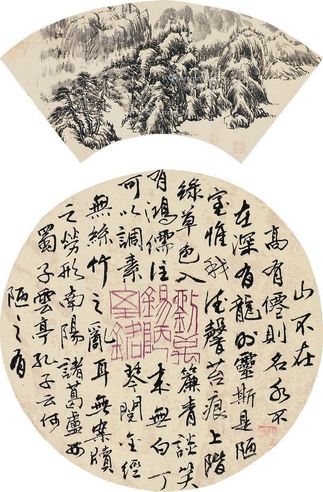 山不在
高有僊則名水不
在深有龍則靈斯是陋
室惟我德馨苔痕上階
綠草色入簾青談笑
有鴻儒往來無白丁
可以調素琴閱金經
無絲竹之亂耳無案牘
之勞形南陽諸葛廬西
蜀子雲亭孔子云何
陋之有
劉禹
錫陋
室銘